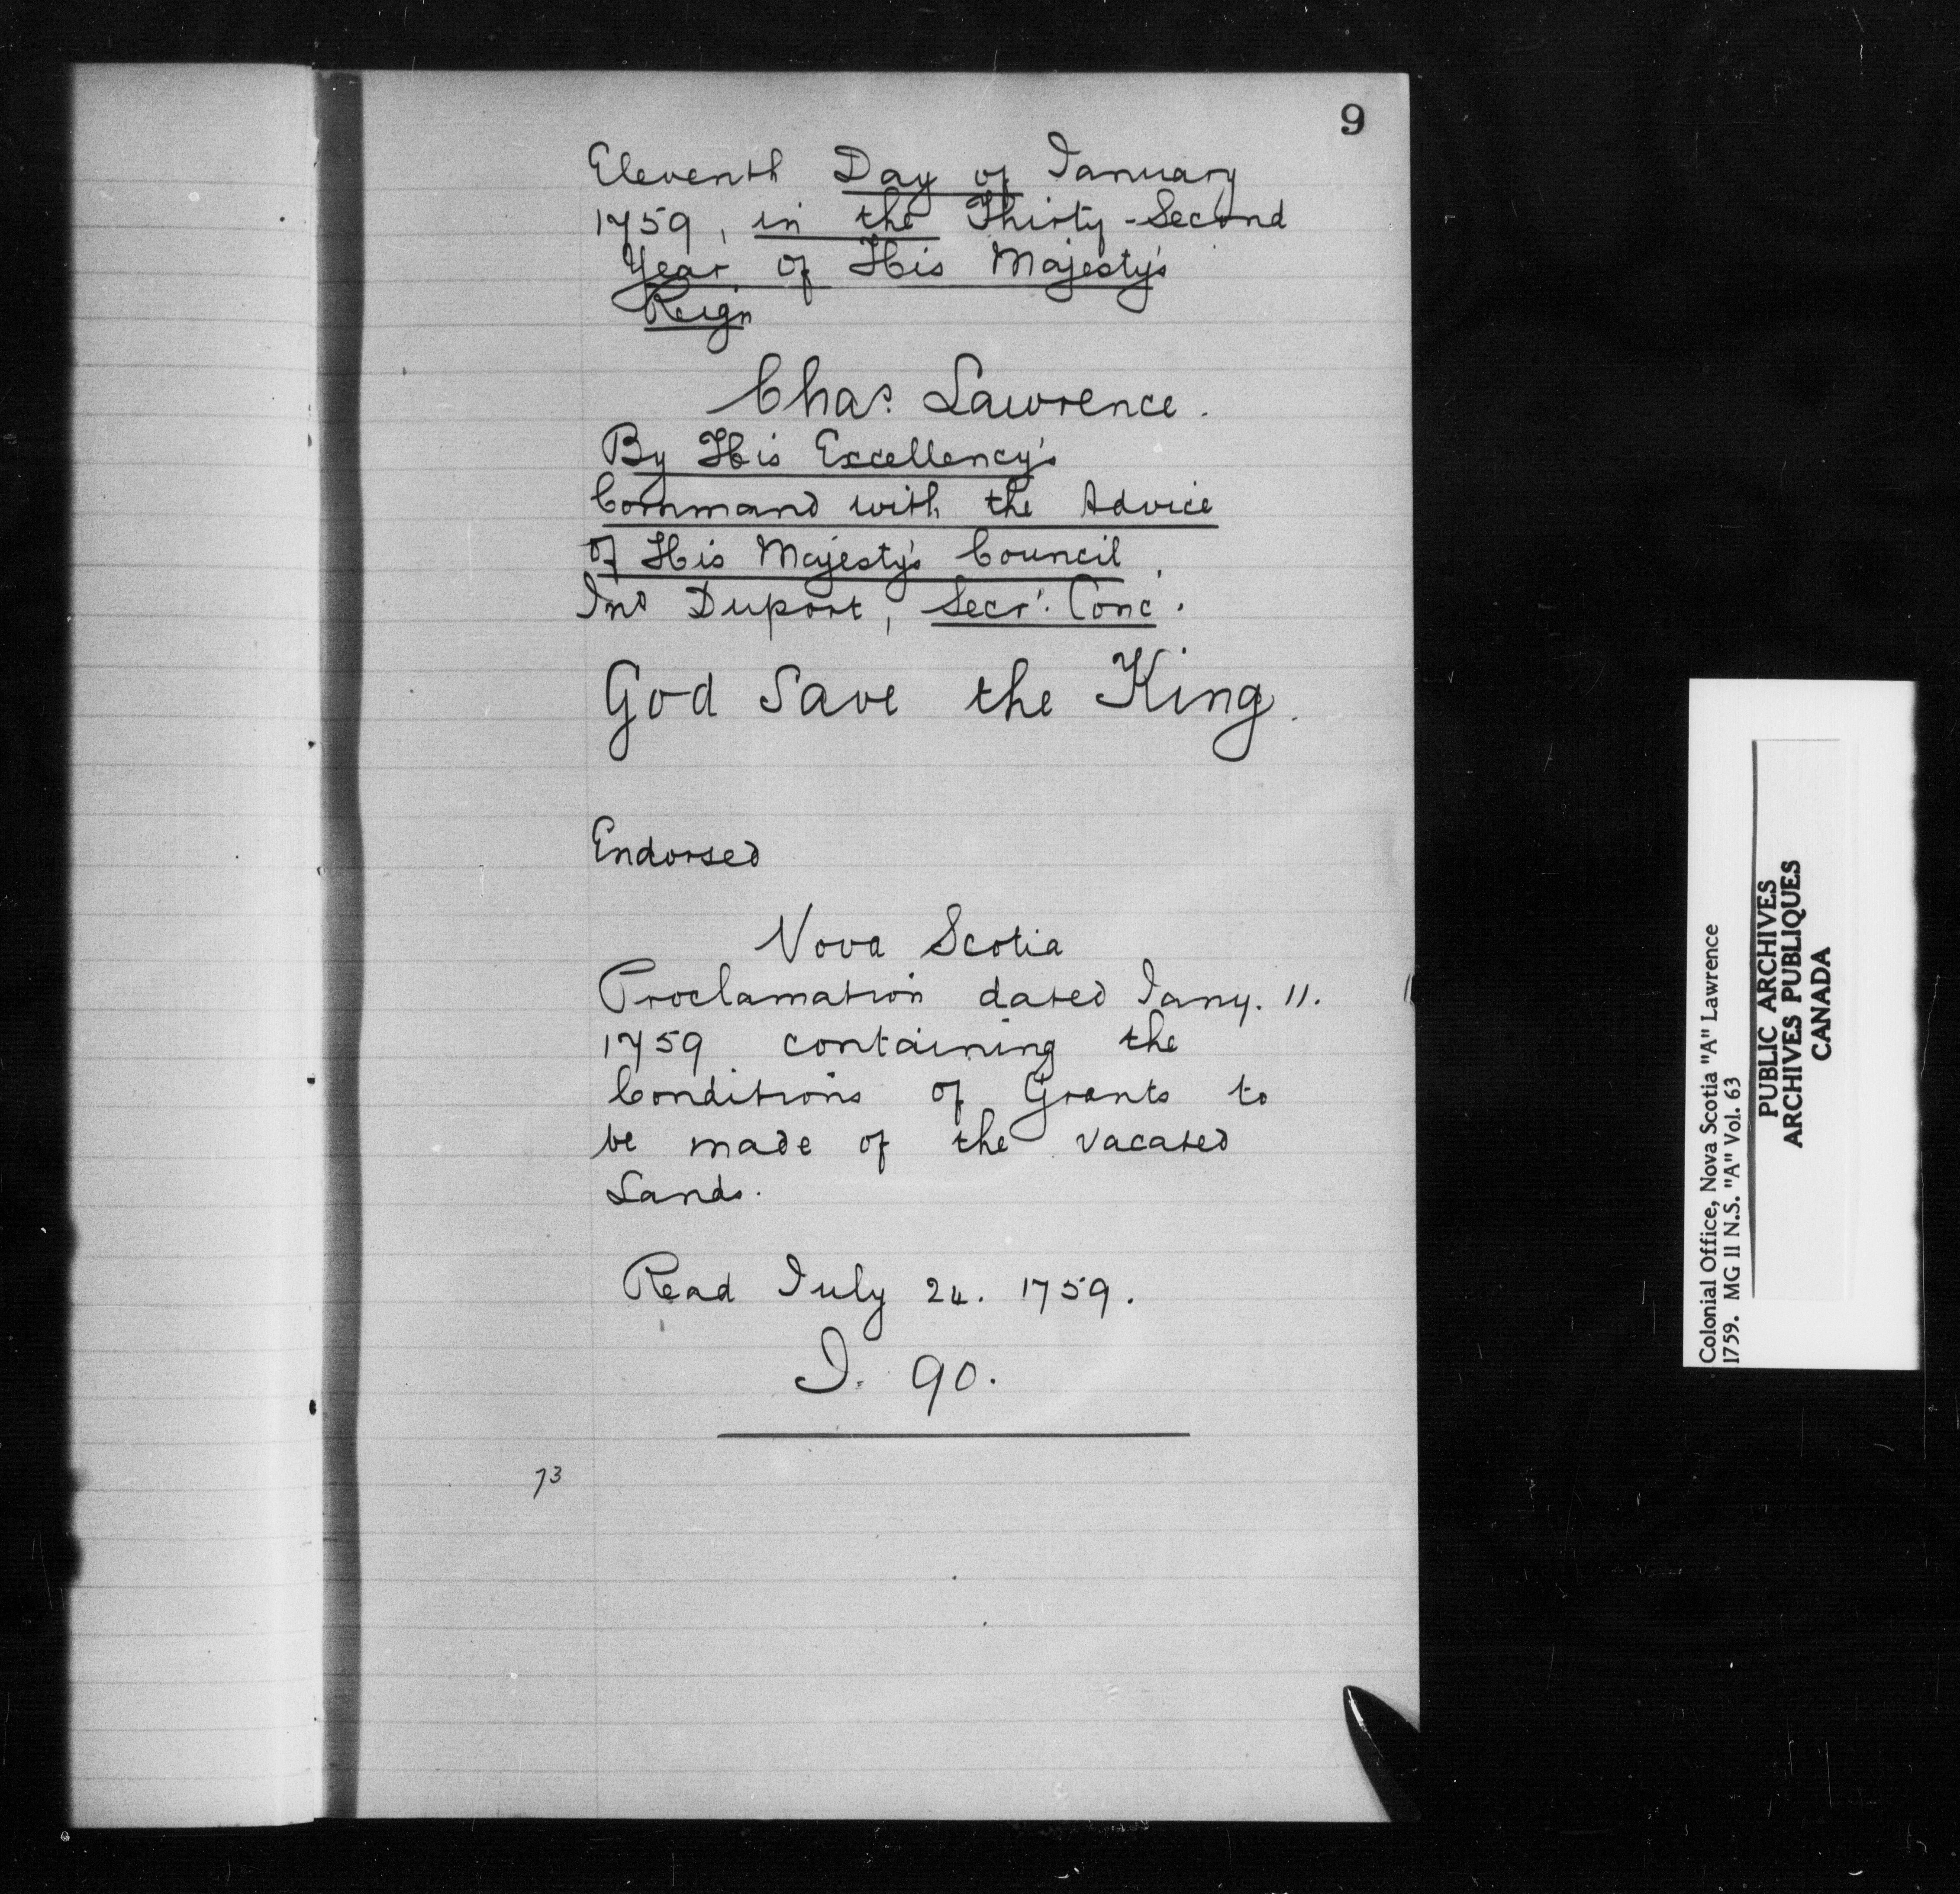 9
Eleventh Day of January
1759, in the Thirty-Second
Year of His Majesty's
Reign
Chas. Lawrence.
By His Excellency's
Command with the Advice
of His Majesty's Council,
Jno Duport, Secr'. Conc.
God Save the King.
Endorsed
Nova Scotia
Proclamation dated Jany. 11.
1759 containing the
Conditions of Grants to
be made of the vacated
Lands.
Read July 24. 1759.
I. 90.
73
Colonial Office, Nova Scotia "A" Lawrence
1759. MG 11 N.S. "A" Vol. 63
PUBLIC ARCHIVES
ARCHIVES PUBLIQUES
CANADA